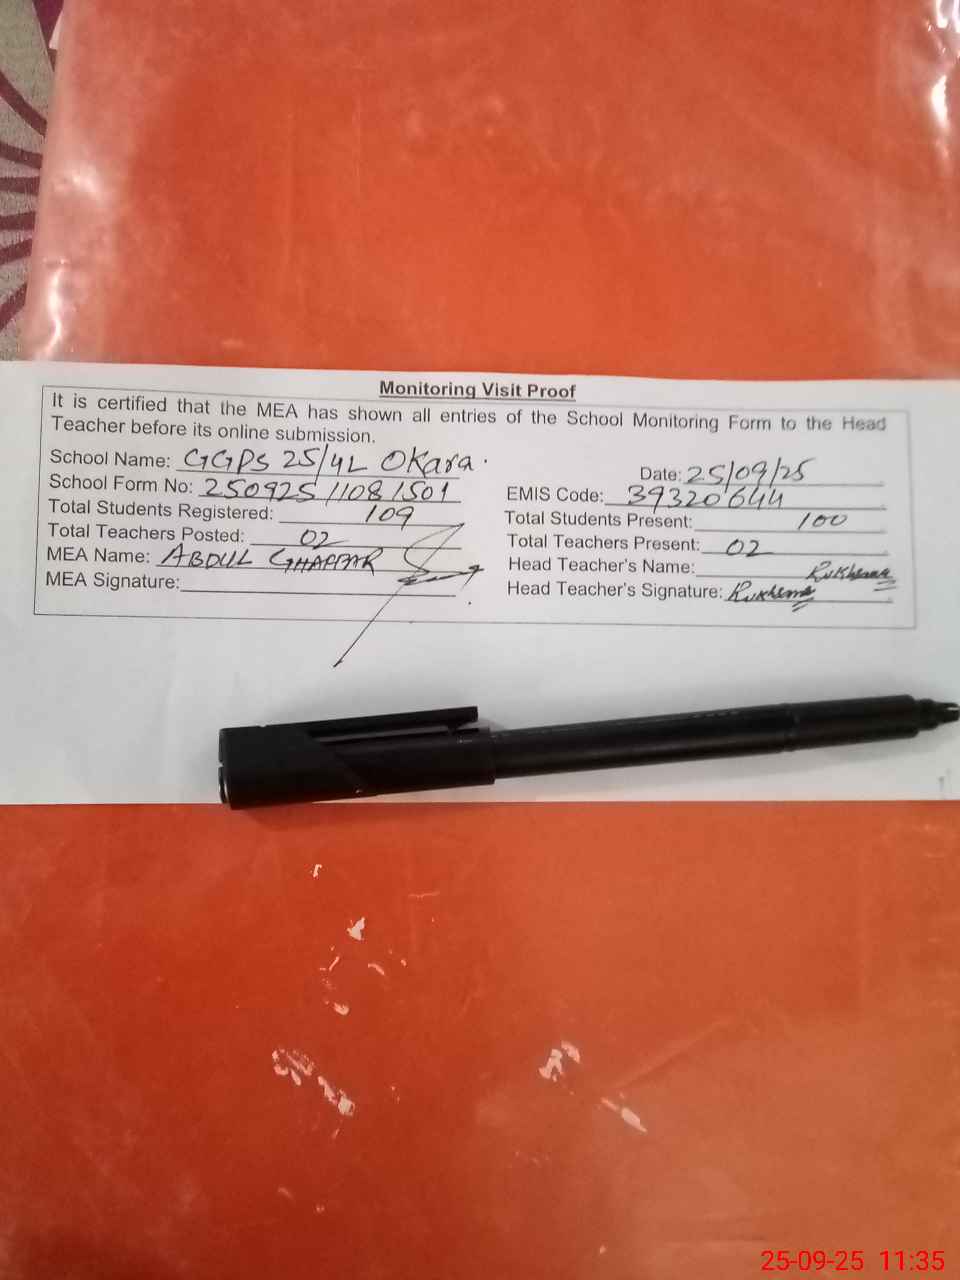 Monitoring Visit Proof
It is certified that the MEA has shown all entries of the School Monitoring Form to the Head
Teacher before its online submission.
School Name: GGPS 25/4L Okara.
Date: 25/09/25
School Form No: 250925 11081501
EMIS Code: 39320644
Total Students Registered: 109
Total Students Present: 100
Total Teachers Posted: 02
Total Teachers Present: 02
MEA Name: ABDUL GHAFFAR
Head Teacher's Name: Rukhsana
MEA Signature:
Head Teacher's Signature: Rukhsana
25-09-25 11:35